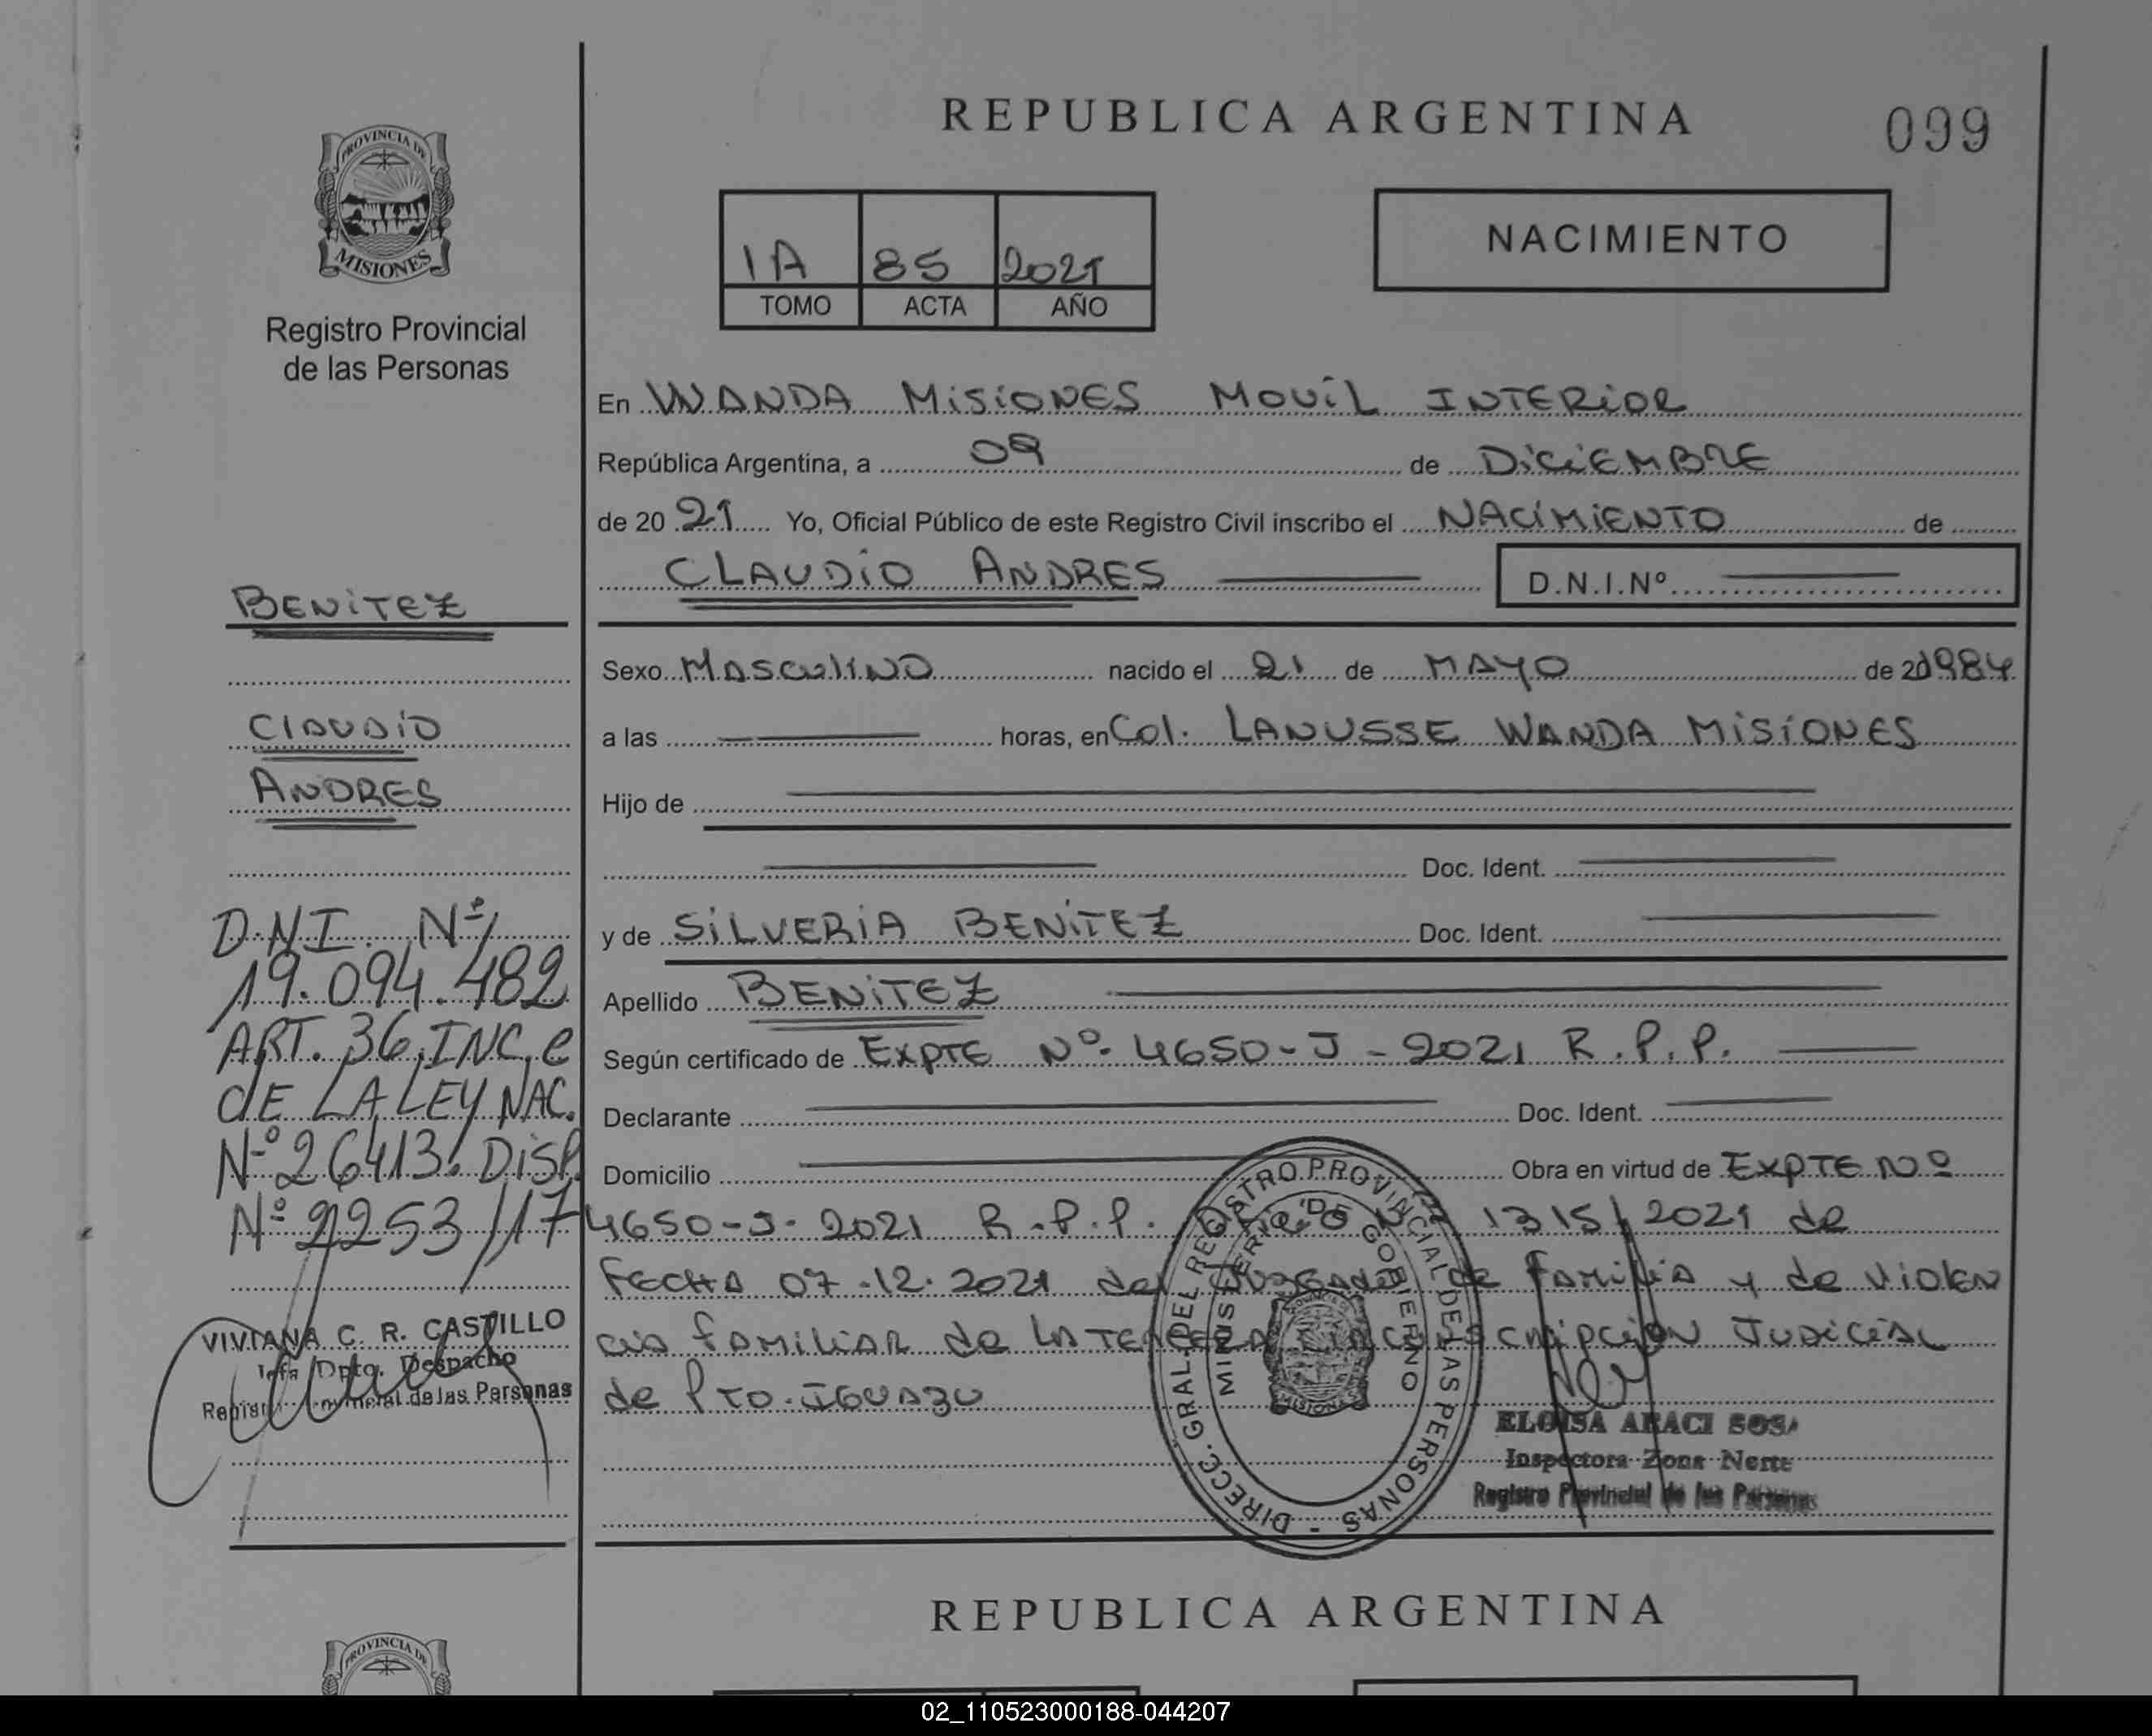 REPUBLICA ARGENTINA
099
PROVINCIA DE
MISIONES
Registro Provincial
de las Personas
1A 85 2021
TOMO ACTA AÑO
NACIMIENTO
En WANDA MISIONES MOVIL INTERIOR
República Argentina, a 09 de DICIEMBRE
de 20 21 Yo, Oficial Público de este Registro Civil inscribo el NACIMIENTO de
CLAUDIO ANDRES D.N.I.Nº
Sexo MASCULINO nacido el 21 de MAYO de 1984
a las horas, en Col. LANUSSE WANDA MISIONES
Hijo de
Doc. Ident.
y de SILVERIA BENITEZ Doc. Ident.
Apellido BENITEZ
Según certificado de EXPTE Nº 4650-J-2021 R.P.P.
Declarante Doc. Ident.
Domicilio Obra en virtud de EXPTE Nº
4650-J-2021 R.P.P. 1315/2021 de
FECHA 07-12-2021 del JUZGADO de FAMILIA y de VIOLEN
CIA FAMILIAR de LA TERCERA CIRCUNSCRIPCION JUDICIAL
de PTO. IGUAZU
BENITEZ
CLAUDIO
ANDRES
D.N.I. Nº
19.094.482
ART. 36, INC, e
dE LA LEY NAC.
Nº 26413. DISP.
Nº 2253/17
VIVIANA C. R. CASTILLO
Jefa Dpto. Despacho
de las Personas
DIRECC. GRAL. DEL REGISTRO PROVINCIAL DE LAS PERSONAS -
MINISTERIO DE GOBIERNO
ELOISA ARACI SOSA
Inspectora Zona Norte
Registro Provincial de las Personas
REPUBLICA ARGENTINA
PROVINCIA DE
02_110523000188-044207